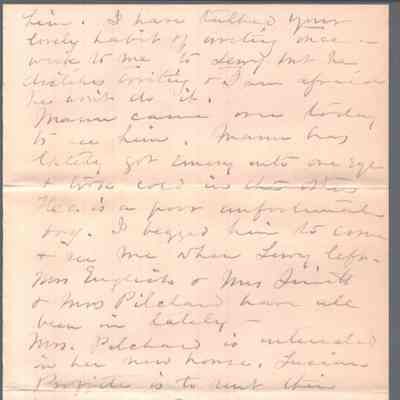 him. I have talked your
lovely habit of writing once a
week to me to Lewy but he
dislikes writing & I am afraid
he wont do it.
Mann came over today
to see him. Mann has
lately got emery into one eye
& took cold in
He is a poor unfortunate
boy. I begged him to come
& see me when Lewy left.
Mrs English & Mrs
& Mrs Pilchard have all
been in lately -
Mrs. Pilchard is interested
in her new house. Lucian
is to rent their